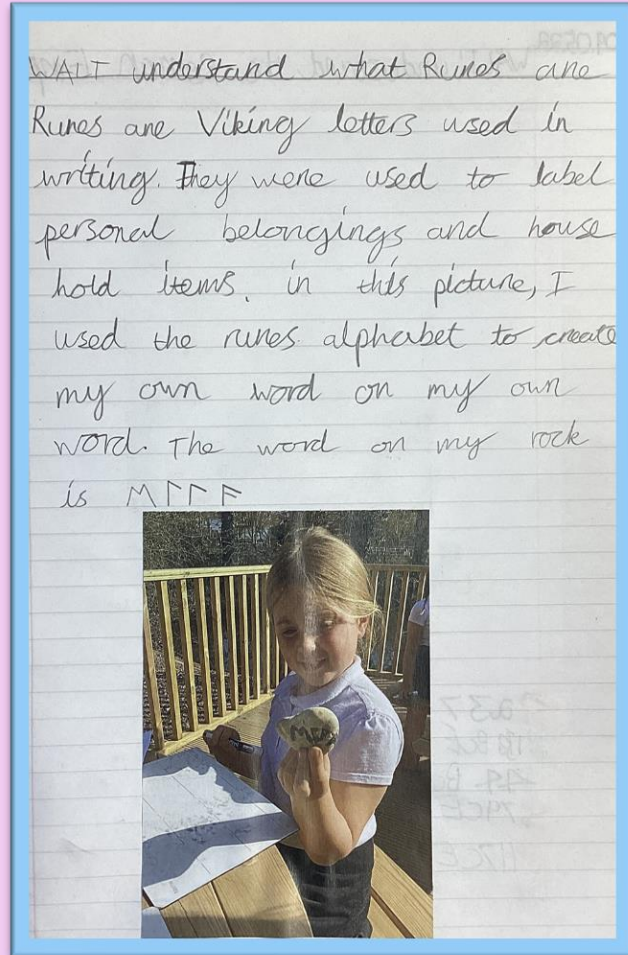 WALT understand what Runes are
Runes are Viking letters used in
writing. They were used to label
personal belongings and house
hold items. in this picture, I
used the runes alphabet to create
my own word on my own
word. The word on my rock
is ᛖᛚᛚᚨ